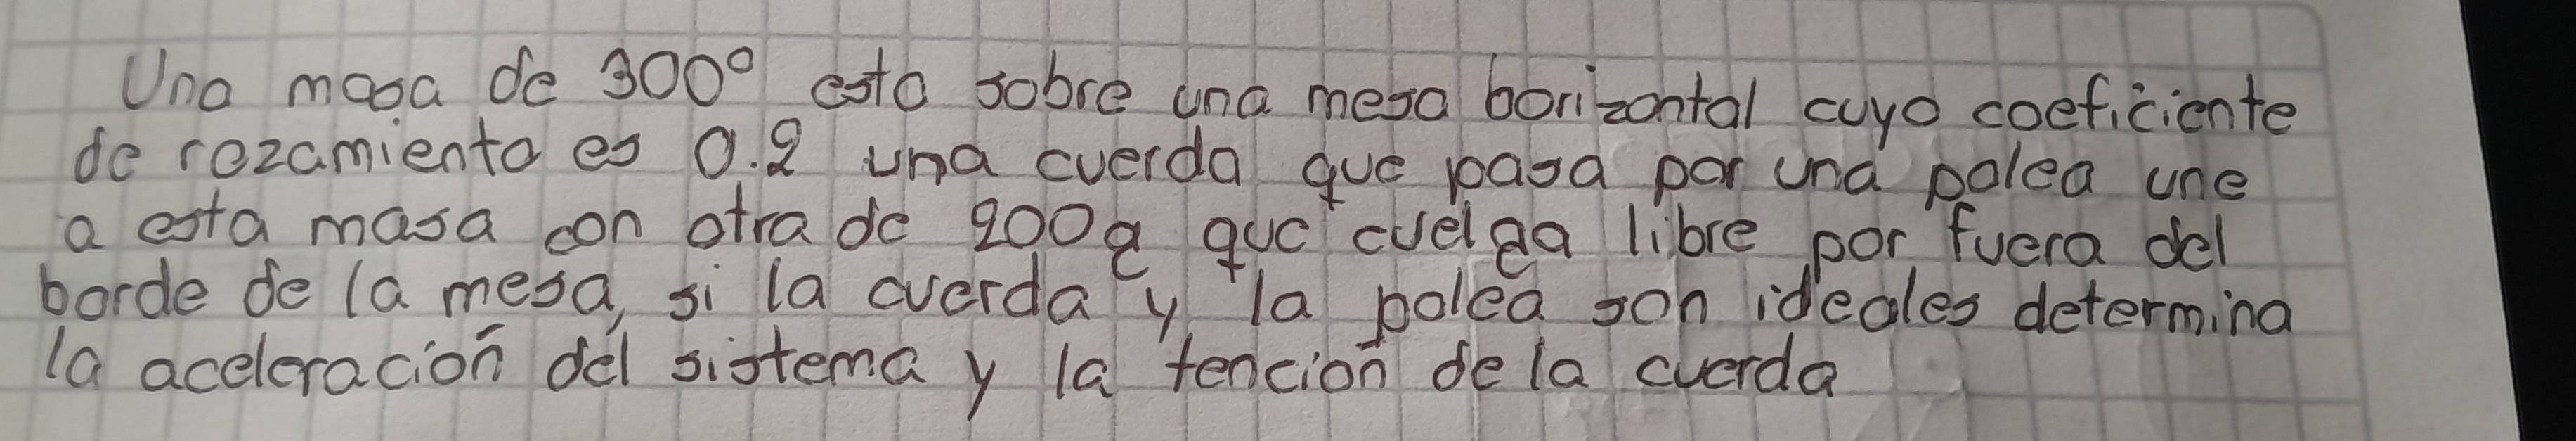 Una masa de 300° esta sobre una mesa horizontal cuyo coeficiente
de rozamiento es 0.2 una cuerda que pasa por una polea une
a esta masa con otra de 200g que cuelga libre por fuera del
borde de la mesa, si la cuerda y la polea son ideales determina
la aceleración del sistema y la tención de la cuerda